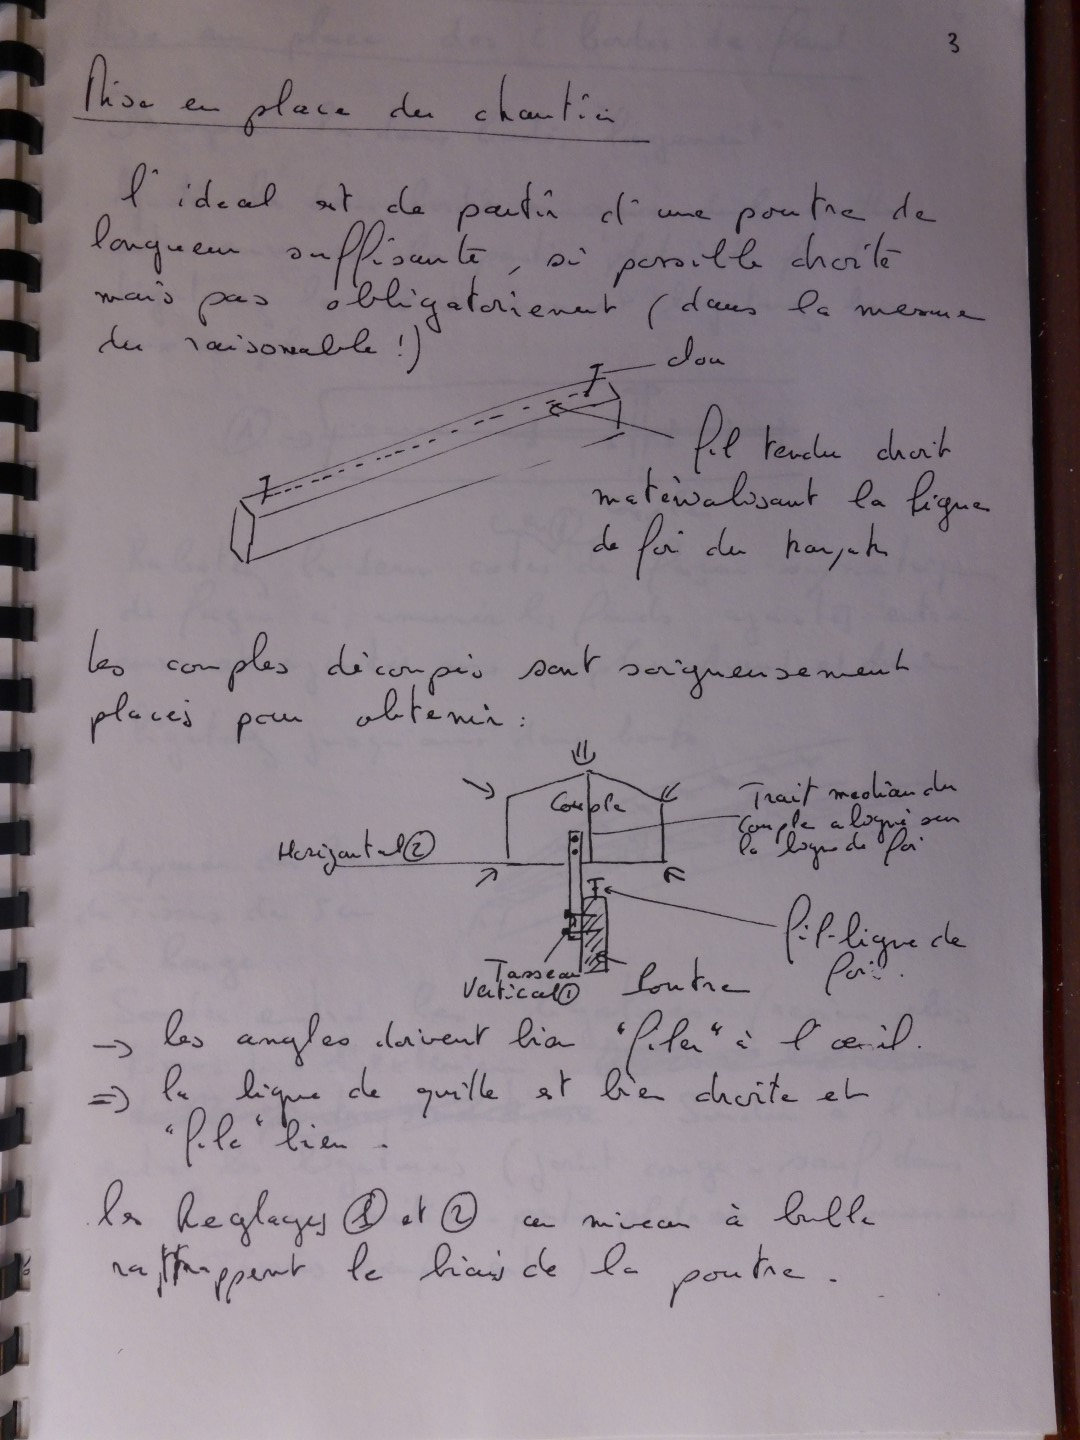 3
Mise en place du chantier
l'ideal est de partir d'une poutre de
longueur suffisante, si possible droite
mais pas obligatoriement (dans la mesure
du raisonable !)
clou
fil tendu droit
materialisant la ligne
de foi du
les couples découpés sont soigneusement
placés pour obtenir :
Couple
Trait median du
Couple aligné sur
la ligne de foi
Horizontal ②
fil-ligne de
foi.
Tasseau
Vertical ①
Poutre
→ les angles doivent bien "filer" à l'œil.
⇒ la ligne de quille est bien droite et
"file" bien.
les Reglages ① et ② au niveau à bulle
rattrappent le biais de la poutre.